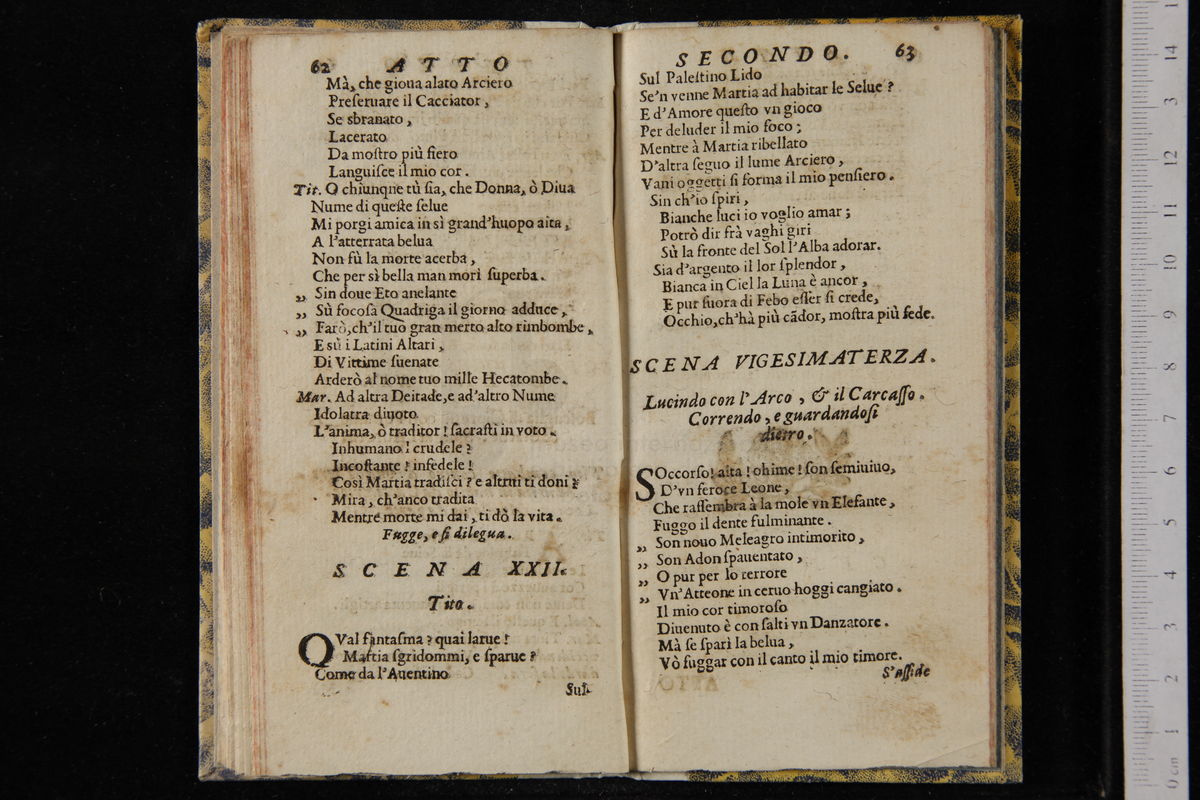 62 ATTO
Mà, che gioua alato Arciero
Preseruare il Cacciator,
Se sbranato,
Lacerato
Da mostro più fiero
Languisce il mio cor.
Tit. O chiunque tù sia, che Donna, ò Diua
Nume di queste selue
Mi porgi amica in sì grand'huopo aita,
A l'atterrata belua
Non fù la morte acerba,
Che per sì bella man morì superba.
„ Sin doue Eto anelante
„ Sù focosa Quadriga il giorno adduce,
„ Farò, ch'il tuo gran merto alto rimbombe,
E sù i Latini Altari,
Di Vittime suenate
Arderò al nome tuo mille Hecatombe.
Mar. Ad altra Deitade, e ad'altro Nume
Idolatra diuoto
L'anima, ò traditor! sacrasti in voto.
Inhumano! crudele?
Incostante! infedele!
Così Martia tradisci? e altrui ti doni?
Mira, ch'anco tradita
Mentre morte mi dai, ti dò la vita.
Fugge, e si dilegua.
SCENA XXII.
Tito.
QVal fantasma? quai larue!
Martia sgridommi, e sparue?
Come da l'Auentino
Sul
SECONDO. 63
Sul Palestino Lido
Se'n venne Martia ad habitar le Selue?
E d'Amore questo vn gioco
Per deluder il mio foco;
Mentre à Martia ribellato
D'altra seguo il lume Arciero,
Vani oggetti si forma il mio pensiero.
Sin ch'io spiri,
Bianche luci io voglio amar;
Potrò dir frà vaghi giri
Sù la fronte del Sol l'Alba adorar.
Sia d'argento il lor splendor,
Bianca in Ciel la Luna è ancor,
E pur suora di Febo esser si crede,
Occhio, ch'hà più cãdor, mostra più fede.
SCENA VIGESIMATERZA.
Lucindo con l'Arco, & il Carcasso.
Correndo, e guardandosi
dietro.
SOccorso! aita! ohime! son semiuiuo,
D'vn feroce Leone,
Che rassembra à la mole vn Elefante,
Fuggo il dente fulminante.
„ Son nouo Meleagro intimorito,
„ Son Adon spauentato,
„ O pur per lo terrore
„ Vn'Atteone in ceruo hoggi cangiato.
Il mio cor timoroso
Diuenuto è con salti vn Danzatore.
Mà se sparì la belua,
Vò fuggar con il canto il mio timore.
S'asside